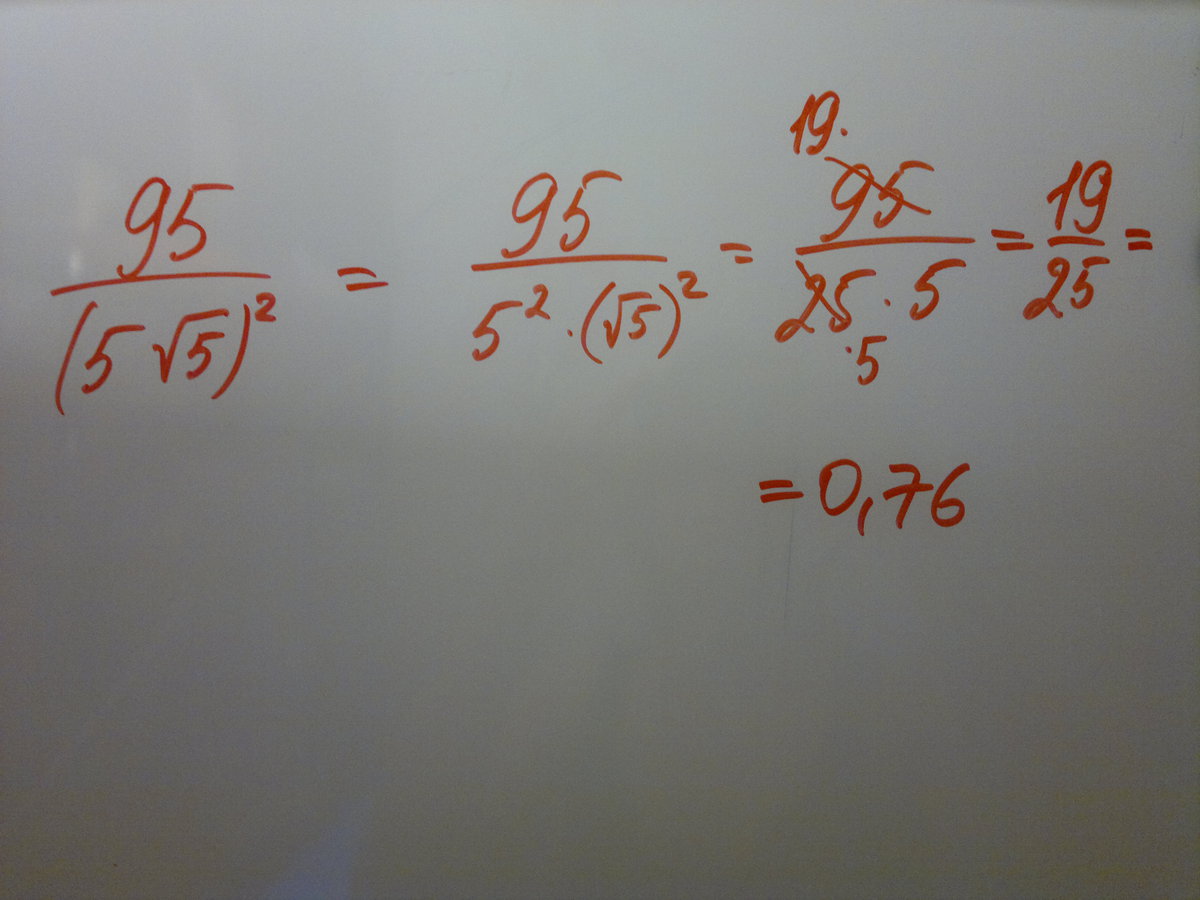 95/(5√5)² = 95/(5² · (√5)²) = 19· 95/(25 · 5) ·5 = 19/25 =
= 0,76